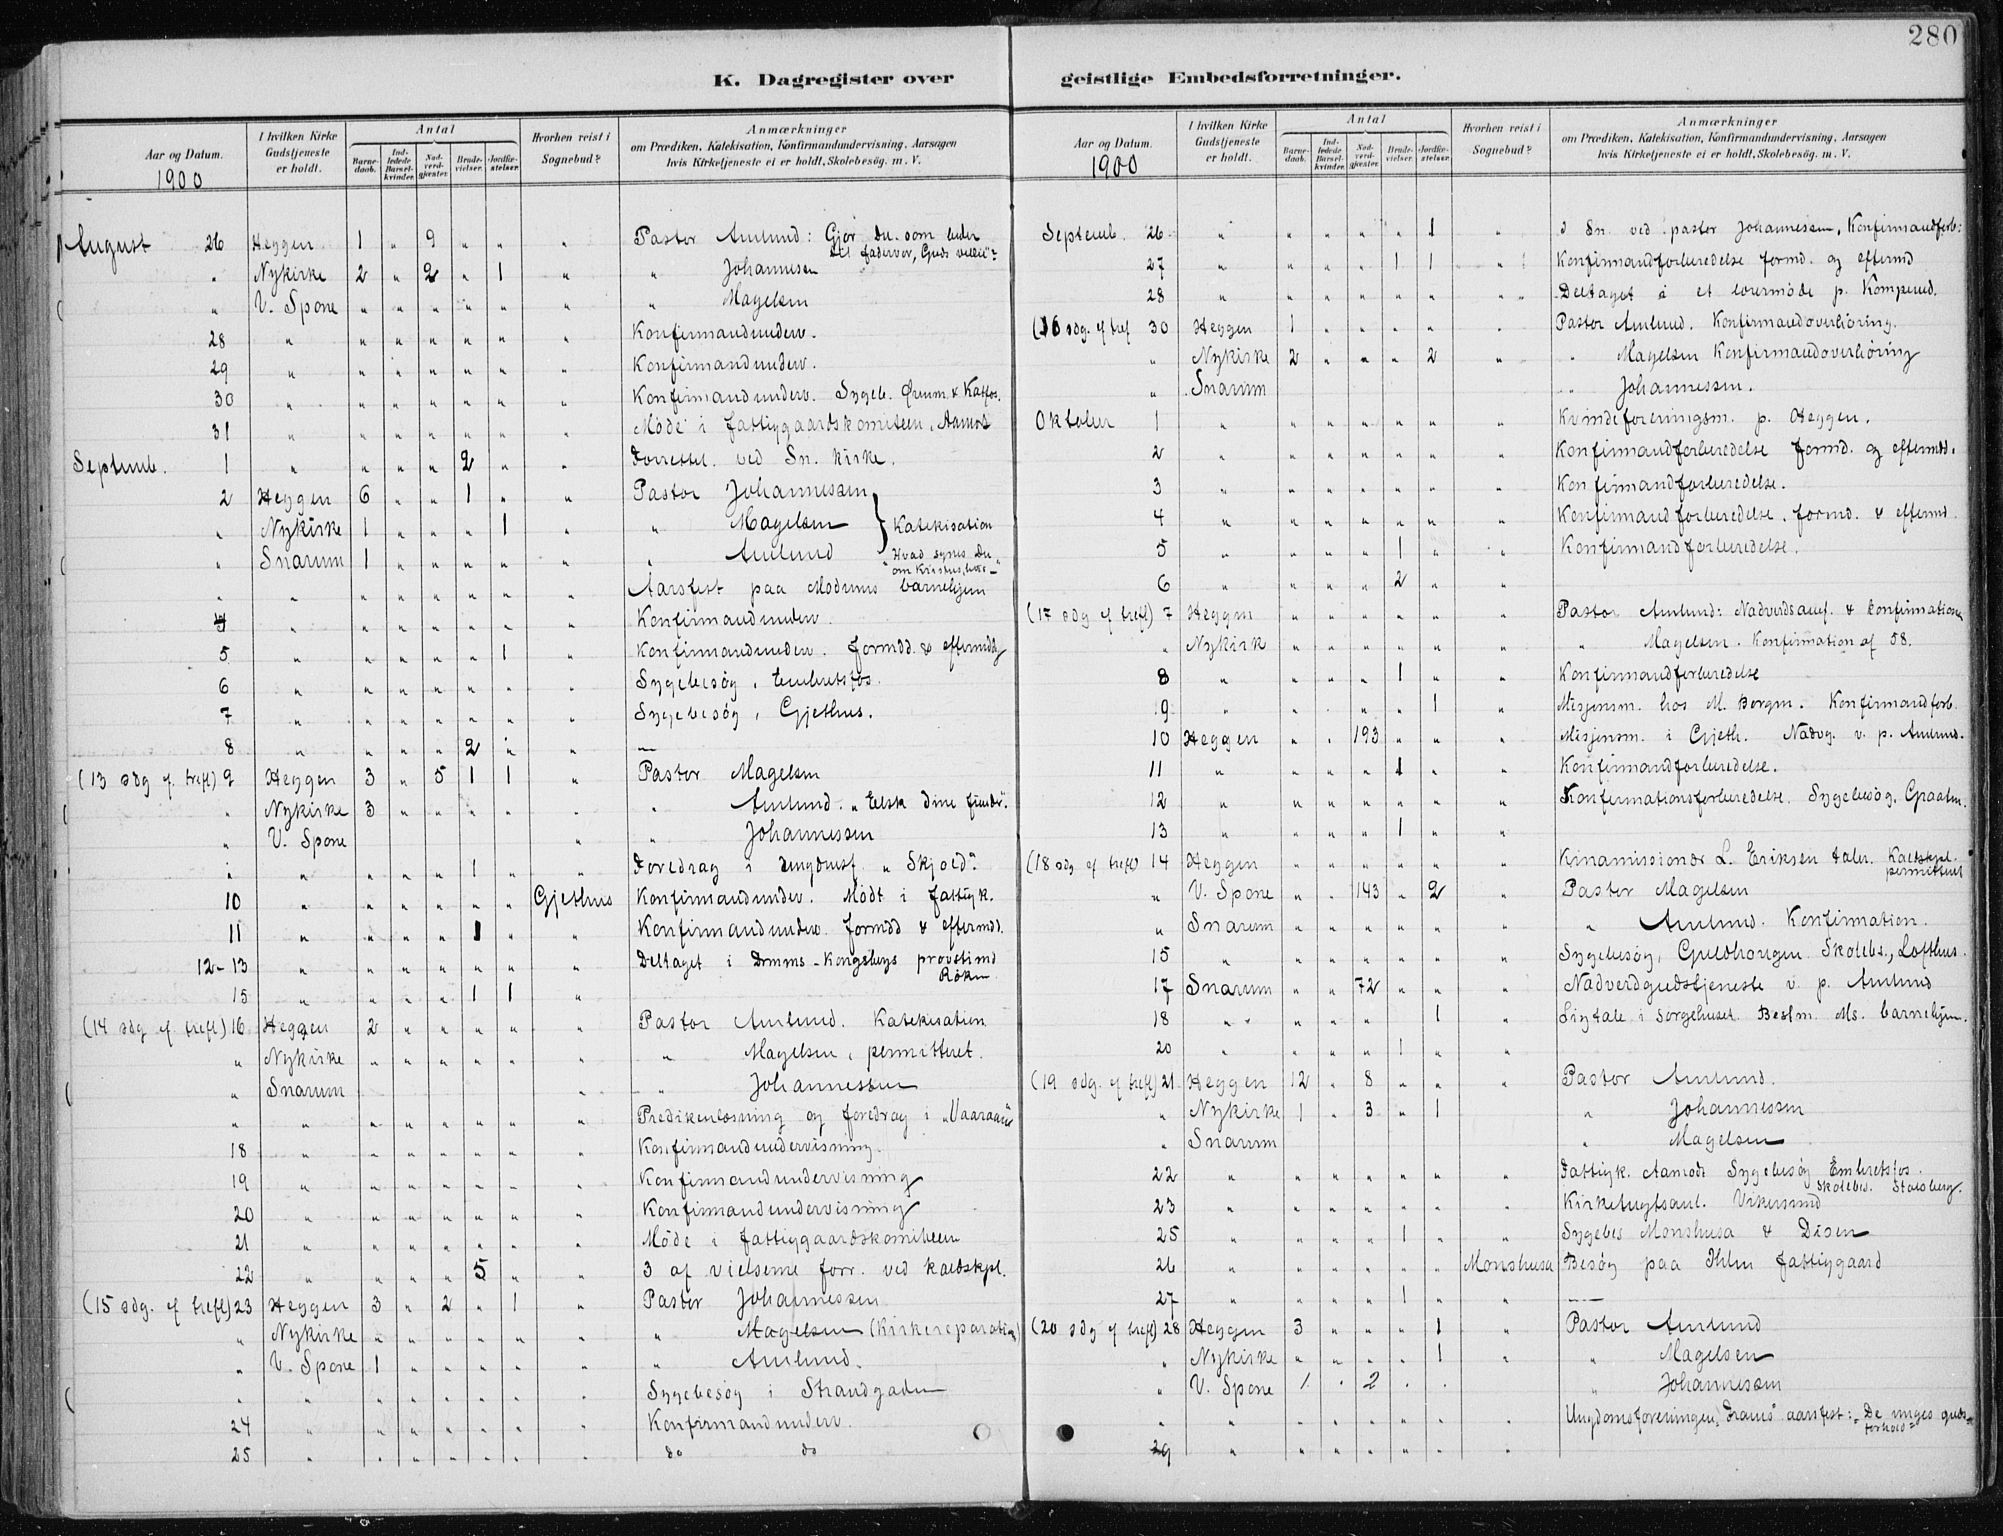 280
K. Dagregister over geistlige Embedsforretninger.
Aar og Datum. 1900
I hvilken Kirke Gudstjeneste er holdt.
Antal
Barnedaab.
Indledede Barselkvinder.
Nadverdgjester.
Brudevielser.
Jordfæstelser.
Hvorhen reist i Sognebud?
Anmærkninger
om Prædiken, Katekisation, Konfirmandundervisning, Aarsagen
hvis Kirketjeneste ei er holdt, Skolebesög. m. V.
August 26 Heggen 1 " 9 " " " Pastor Amlund: Gjör Du som beder
til fadervor, Guds villie"?
" Nykirke 2 " 2 " 1 " " Johannesen
" V. Spone " " " " " " " Magelsen
28 " " " " " " " Konfirmandunderv.
29 " " " " " " " Konfirmandunderv.
30 " " " " " " " Konfirmandunderv. Sygeb. Örum & Katfos.
31 " " " " " " " Möde i fattiggaardskomiteen, Aamot
Septemb. 1 " " " " 2 " " Forrettet ved Sn. kirke.
2 Heggen 6 " " 1 " " Pastor Johannessen
" Nykirke 1 " " " 1 " " Magelsen } Katekisation
" Snarum 1 " " " " " " Amlund "Hvad synes Du
om Kristus, hvis"
" " " " " " " " Aarsfest paa Modums barnehjem
4 " " " " " " " Konfirmandunderv.
5 " " " " " 1 " Konfirmandunderv. formdd. & eftermdd
6 " " " " " " " Sygebesög, Embretsfos.
7 " " " " " " " Sygebesög, Gjethus.
8 " " " " 2 " " —
(13 sdg. f. trefl) 9 Heggen 3 " 5 1 1 " Pastor Magelsen
" Nykirke 3 " " " " " " Amlund: "Elsk dine fiender".
" V. Spone " " Johannessen
" " " " " 1 " " Foredrag i ungdmsf. "Skjold".
10 " " " " " " Gjethus Konfirmandunderv. Mödt i fattigk.
11 " " " " 1 " " Konfirmandunderv. formdd & eftermdd.
12-13 " " " " " " " Deltaget i Drmms-Kongsbergs provstimd
Röken
15 " " " " 1 1 "
(14 sdg. f. trefl) 16 Heggen 2 " " " " " Pastor Amlund. Katekisation
" Nykirke " " " " " " " Magelsen, permitteret.
" Snarum " " Johannessen
" " " " " " " " Predikenlæsning og foredrag i "Vaaraand"
18 " " " " " " " Konfirmandundervisning.
19 " " " " " " " Konfirmandundervisning
20 " " " " " " " Konfirmandundervisning
21 " " " " " " " Möde i fattiggaardskomiteen
22 " " " " 5 " " 3 af vielserne forr. ved kaldskpl.
(15 sdg. f. trefl) 23 Heggen 3 " 2 " 1 " Pastor Johannessen
" Nykirke " " " " " " " Magelsen (Kirkereparation)
" V. Spone 1 " " " " " " Amlund.
" " " " " " " " Sygebesög i Strandgaden
24 " " " " " " " Konfirmandunderv.
25 " " " " " " " do do
Aar og Datum. 1900
I hvilken Kirke Gudstjeneste er holdt.
Antal
Barnedaab.
Indledede Barselkvinder.
Nadverdgjester.
Brudevielser.
Jordfæstelser.
Hvorhen reist i Sognebud?
Anmærkninger
om Prædiken, Katekisation, Konfirmandundervisning, Aarsagen
hvis Kirketjeneste ei er holdt, Skolebesög. m. V.
Septemb. 26 " " " " " 1 " I Sn. ved pastor Johannessen, Konfirmandforb:
27 " " " " 1 1 " Konfirmandforberedelse formd. og eftermd
28 " " " " " " " Deltaget i et læreremöde p. Komperud.
(16 sdg. f. tref 30 Heggen 1 " " " " " Pastor Amlund. Konfirmandoverhöring.
" Nykirke 2 " " " 2 " " Magelsen Konfirmandoverhöring
" Snarum " Johannessen.
Oktober 1 " " " " " " " Kvindeforeningsm. p. Heggen.
2 " " " " " " " Konfirmandforberedelse formd. og eftermd.
3 " " " " " " " Konfirmandforberedelse.
4 " " " " " " " Konfirmandforberedelse. formd. & eftermd.
5 " " " " 1 " " Konfirmandforberedelse.
6 " " " " 2 " "
(17 sdg f trefl) 7 Heggen " " " " " " Pastor Amlund: Nadverdsauf. & konfirmation
" Nykirk " " " " " " " Magelsen. Konfirmation af 58.
8 " " " " 1 " " Konfirmandforberedelse
9 " " " " " 1 " Misjonsm. hos M. Bergm. Konfirmandforb.
10 Heggen " " 193 " " " Misjonsm. i Gjeth. Nadvg. v. p. Amlund.
11 " " " " 1 " " Konfirmandforberedelse.
12 " " " " " " " Konfirmationsforberedelse. Sygebesög,
13 " " " " 1 " "
(18 sdg f trefl) 14 Heggen " " " " " " Kinamissionær L. Eriksen taler. Kaldskpl.
permitteret
" V. Spone " " 143 " 2 " Pastor Magelsen
" Snarum " " " " " " " Amlund. Konfirmation.
15 " " " " " " " Sygebesög, Guldhougen. Skolebs., Lofthus.
17 Snarum " " 72 " " " Nadverdgudstjeneste v. p. Amlund
18 " " " " " 1 " Ligtale i sörgehuset. Bestm. Ms. barnehjem.
20 " " " " 1 " "
(19 sdg. f trefl) 21 Heggen 12 " 8 " " " Pastor Amlund.
" Nykirke 1 " 3 " 1 " " Johannessen
" Snarum " Magelsen
22 " " " " " " " Fattigk. Aamodt. Sygebesög Embretsfos.
Skolebes. Stalsberg.
23 " " " " " " " Vikersund
25 " " " " 1 " " Sygebes Monshusa & Disen
26 " " " " " " Monshusa Besög paa Ihlen fattiggaard
27 " " " " 1 " " —
(20 sdg f trefl) 28 Heggen 3 " " " 1 " Pastor Amlund
" Nykirke " " " " 1 " " Magelsen
" V. Spone 1 " 2 " " " Johannessen
" " " " " " " " Ungdomsforeningen aarsfest: "De unges guds-
forhold"
29 " " " " " " "